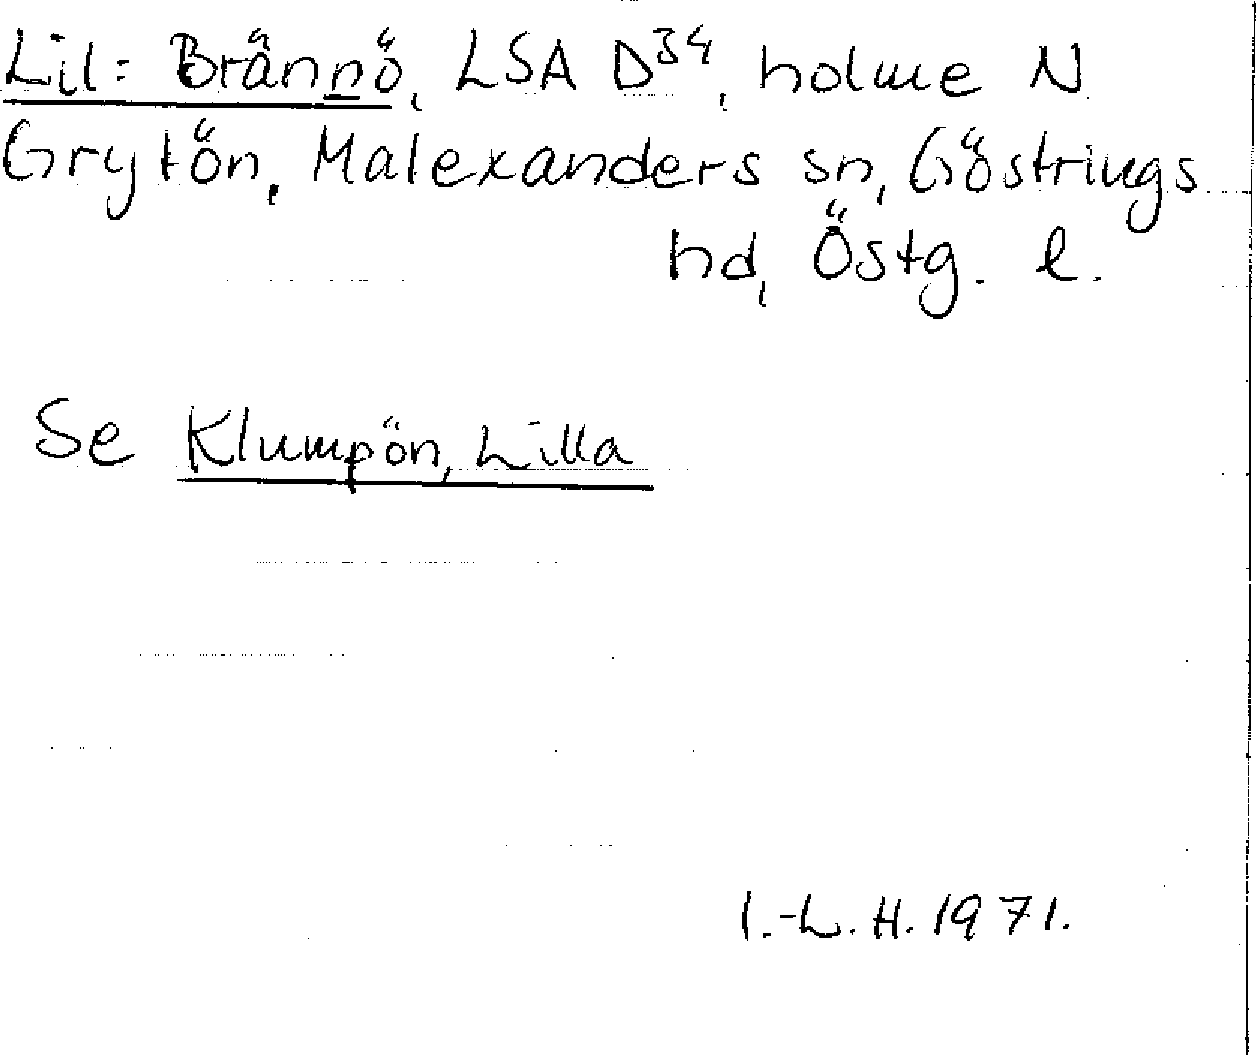 Lil: Brännö, LSA D34, holme N
Grytön, Malexanders sn, Göstrings
hd, Östg. l.
Se Klumpön, Lilla
I.-L. H. 1971.